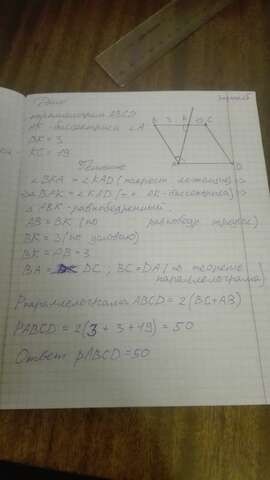 Дано:
параллелограм ABCD
AK - биссектриса ∠A
BK = 3
KC = 19
B 3 K 19 C
A D
Решение
∠BKA = ∠KAD (накрест лежащие)
∠BAK = ∠KAD (т.к AK - биссектриса)
ABK - равнобедренный
AB = BK (по равнобедр треуг.)
BK = 3 (по условию)
BK = AB = 3
BA = DC ; BC = DA (по теореме
параллелограма)
Pпараллелограма ABCD = 2(BC+AB)
PABCD = 2(3 + 3 + 19) = 50
Ответ PABCD = 50